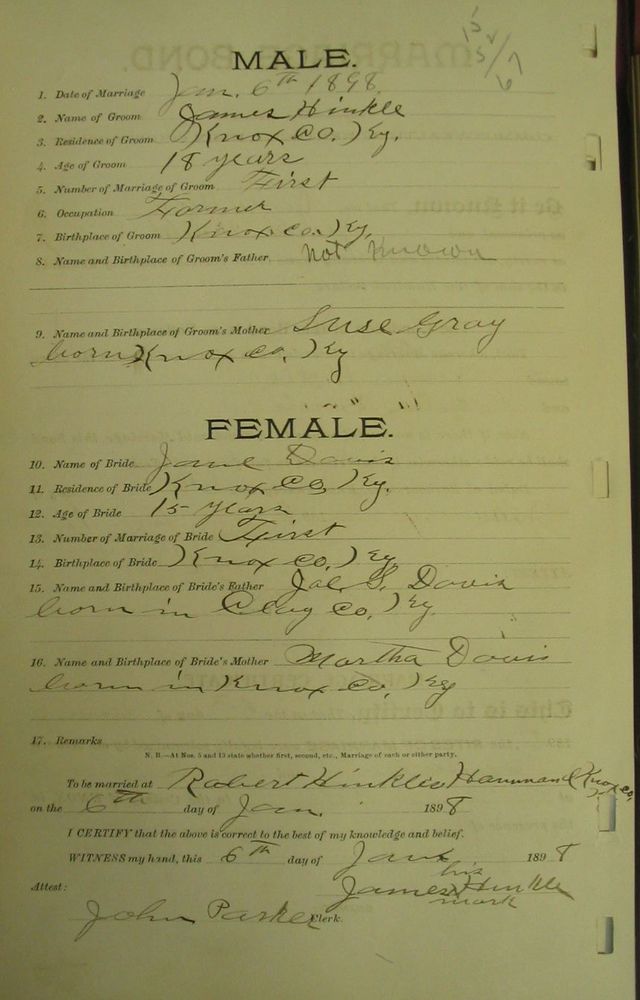 MALE.
1. Date of Marriage Jan. 6th 1898
2. Name of Groom James Hinkle
3. Residence of Groom Knox Co. Ky.
4. Age of Groom 18 years
5. Number of Marriage of Groom First
6. Occupation Farmer
7. Birthplace of Groom Knox Co. Ky.
8. Name and Birthplace of Groom's Father Not Known
9. Name and Birthplace of Groom's Mother Suse Gray
born Knox Co. Ky
FEMALE.
10. Name of Bride Jane Davis
11. Residence of Bride Knox Co. Ky.
12. Age of Bride 15 years
13. Number of Marriage of Bride First
14. Birthplace of Bride Knox Co. Ky
15. Name and Birthplace of Bride's Father S. Davis
born in Clay Co. Ky.
16. Name and Birthplace of Bride's Mother Martha Davis
born in Knox Co. Ky
17. Remarks
N. B.—At Nos. 5 and 13 state whether first, second, etc., Marriage of each or either party.
To be married at Robert Hinkles Hammond Knox Co.
on the 6th day of Jan. 1898
I CERTIFY that the above is correct to the best of my knowledge and belief.
WITNESS my hand, this 6th day of Jan 1898
his
Attest: James X Hinkle
mark
John Parker Clerk.